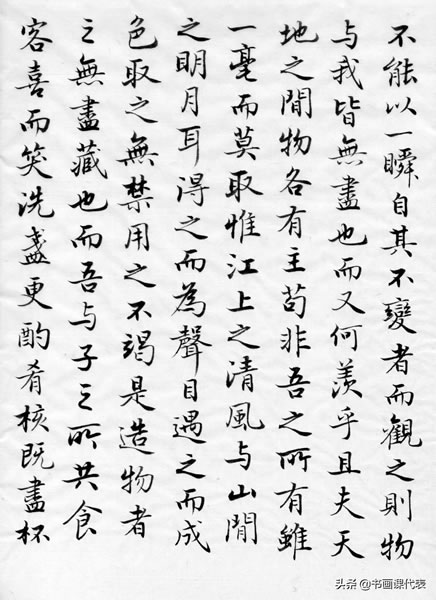 不能以一瞬自其不變者而觀之則物
与我皆無盡也而又何羨乎且夫天
地之間物各有主苟非吾之所有雖
一毫而莫取惟江上之清風与山間
之明月耳得之而為聲目遇之而成
色取之無禁用之不竭是造物者
之無盡藏也而吾与子之所共食
客喜而笑洗盞更酌肴核既盡杯
头条@书画课代表